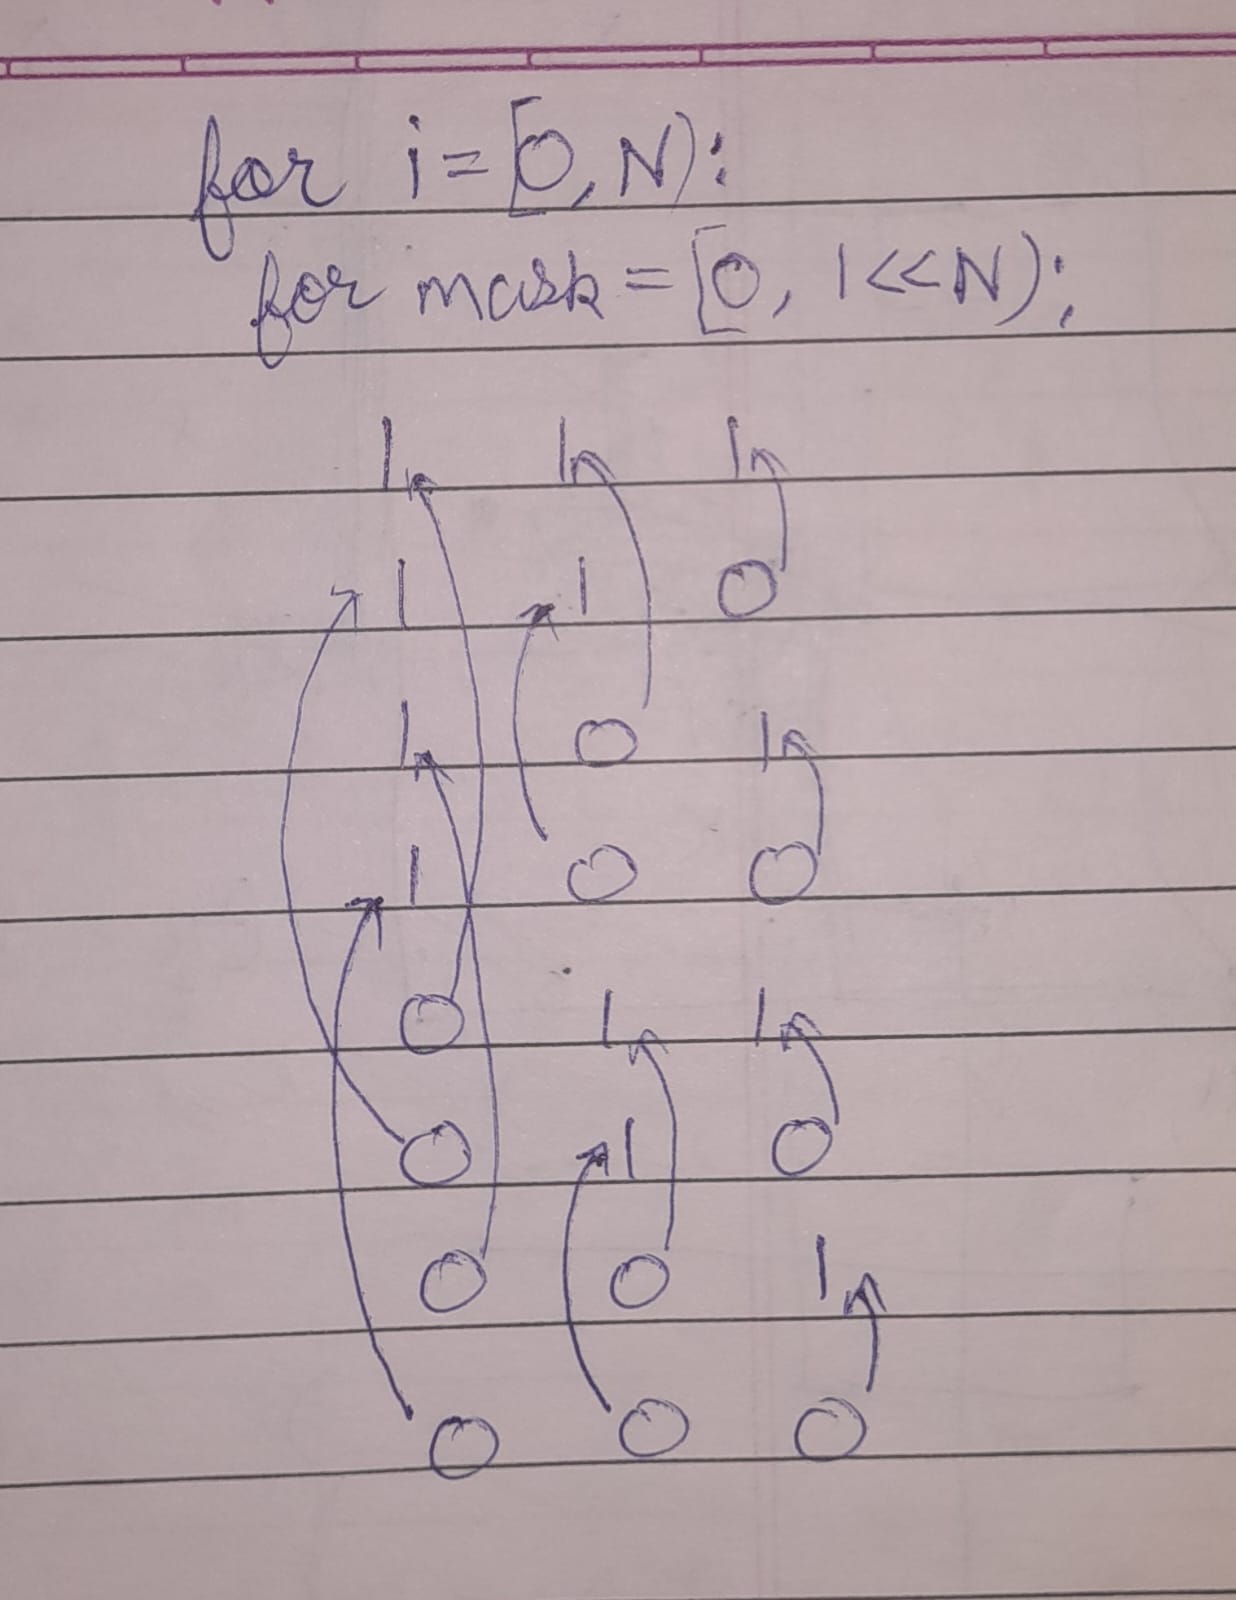 for i = [0, N):
for mask = [0, 1<<N):
1 1 1
1 1 0
1 0 1
1 0 0
0 1 1
0 1 0
0 0 1
0 0 0